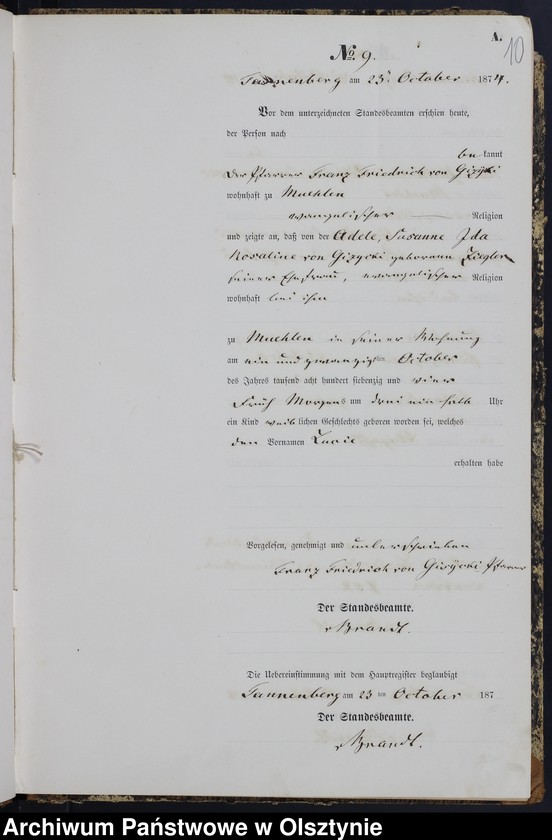 A.
10
No. 9.
Tannenberg am 23ten October 1874.
Vor dem unterzeichneten Standesbeamten erschien heute,
der Person nach
bekannt
der Pfarrer Franz Friedrich von Gizycki
wohnhaft zu Muehlen
evangelischer Religion
und zeigte an, daß von der Adele, Susanne Ida
Rosaline von Gizycki geborenen Ziegler
seiner Ehefrau, evangelischer Religion
wohnhaft bei ihm
zu Muehlen in seiner Wohnung
am ein und zwanzigsten October
des Jahres tausend acht hundert siebenzig und vier
Früh Morgens um drei ein halb Uhr
ein Kind weiblichen Geschlechts geboren worden sei, welches
den Vornamen Lucie
erhalten habe
Vorgelesen, genehmigt und unterschrieben
Franz Friedrich von Gizycki Pfarrer
Der Standesbeamte.
vBrandt.
Die Uebereinstimmung mit dem Hauptregister beglaubigt
Tannenberg am 23 ten October 187
Der Standesbeamte.
vBrandt.
Archiwum Państwowe w Olsztynie